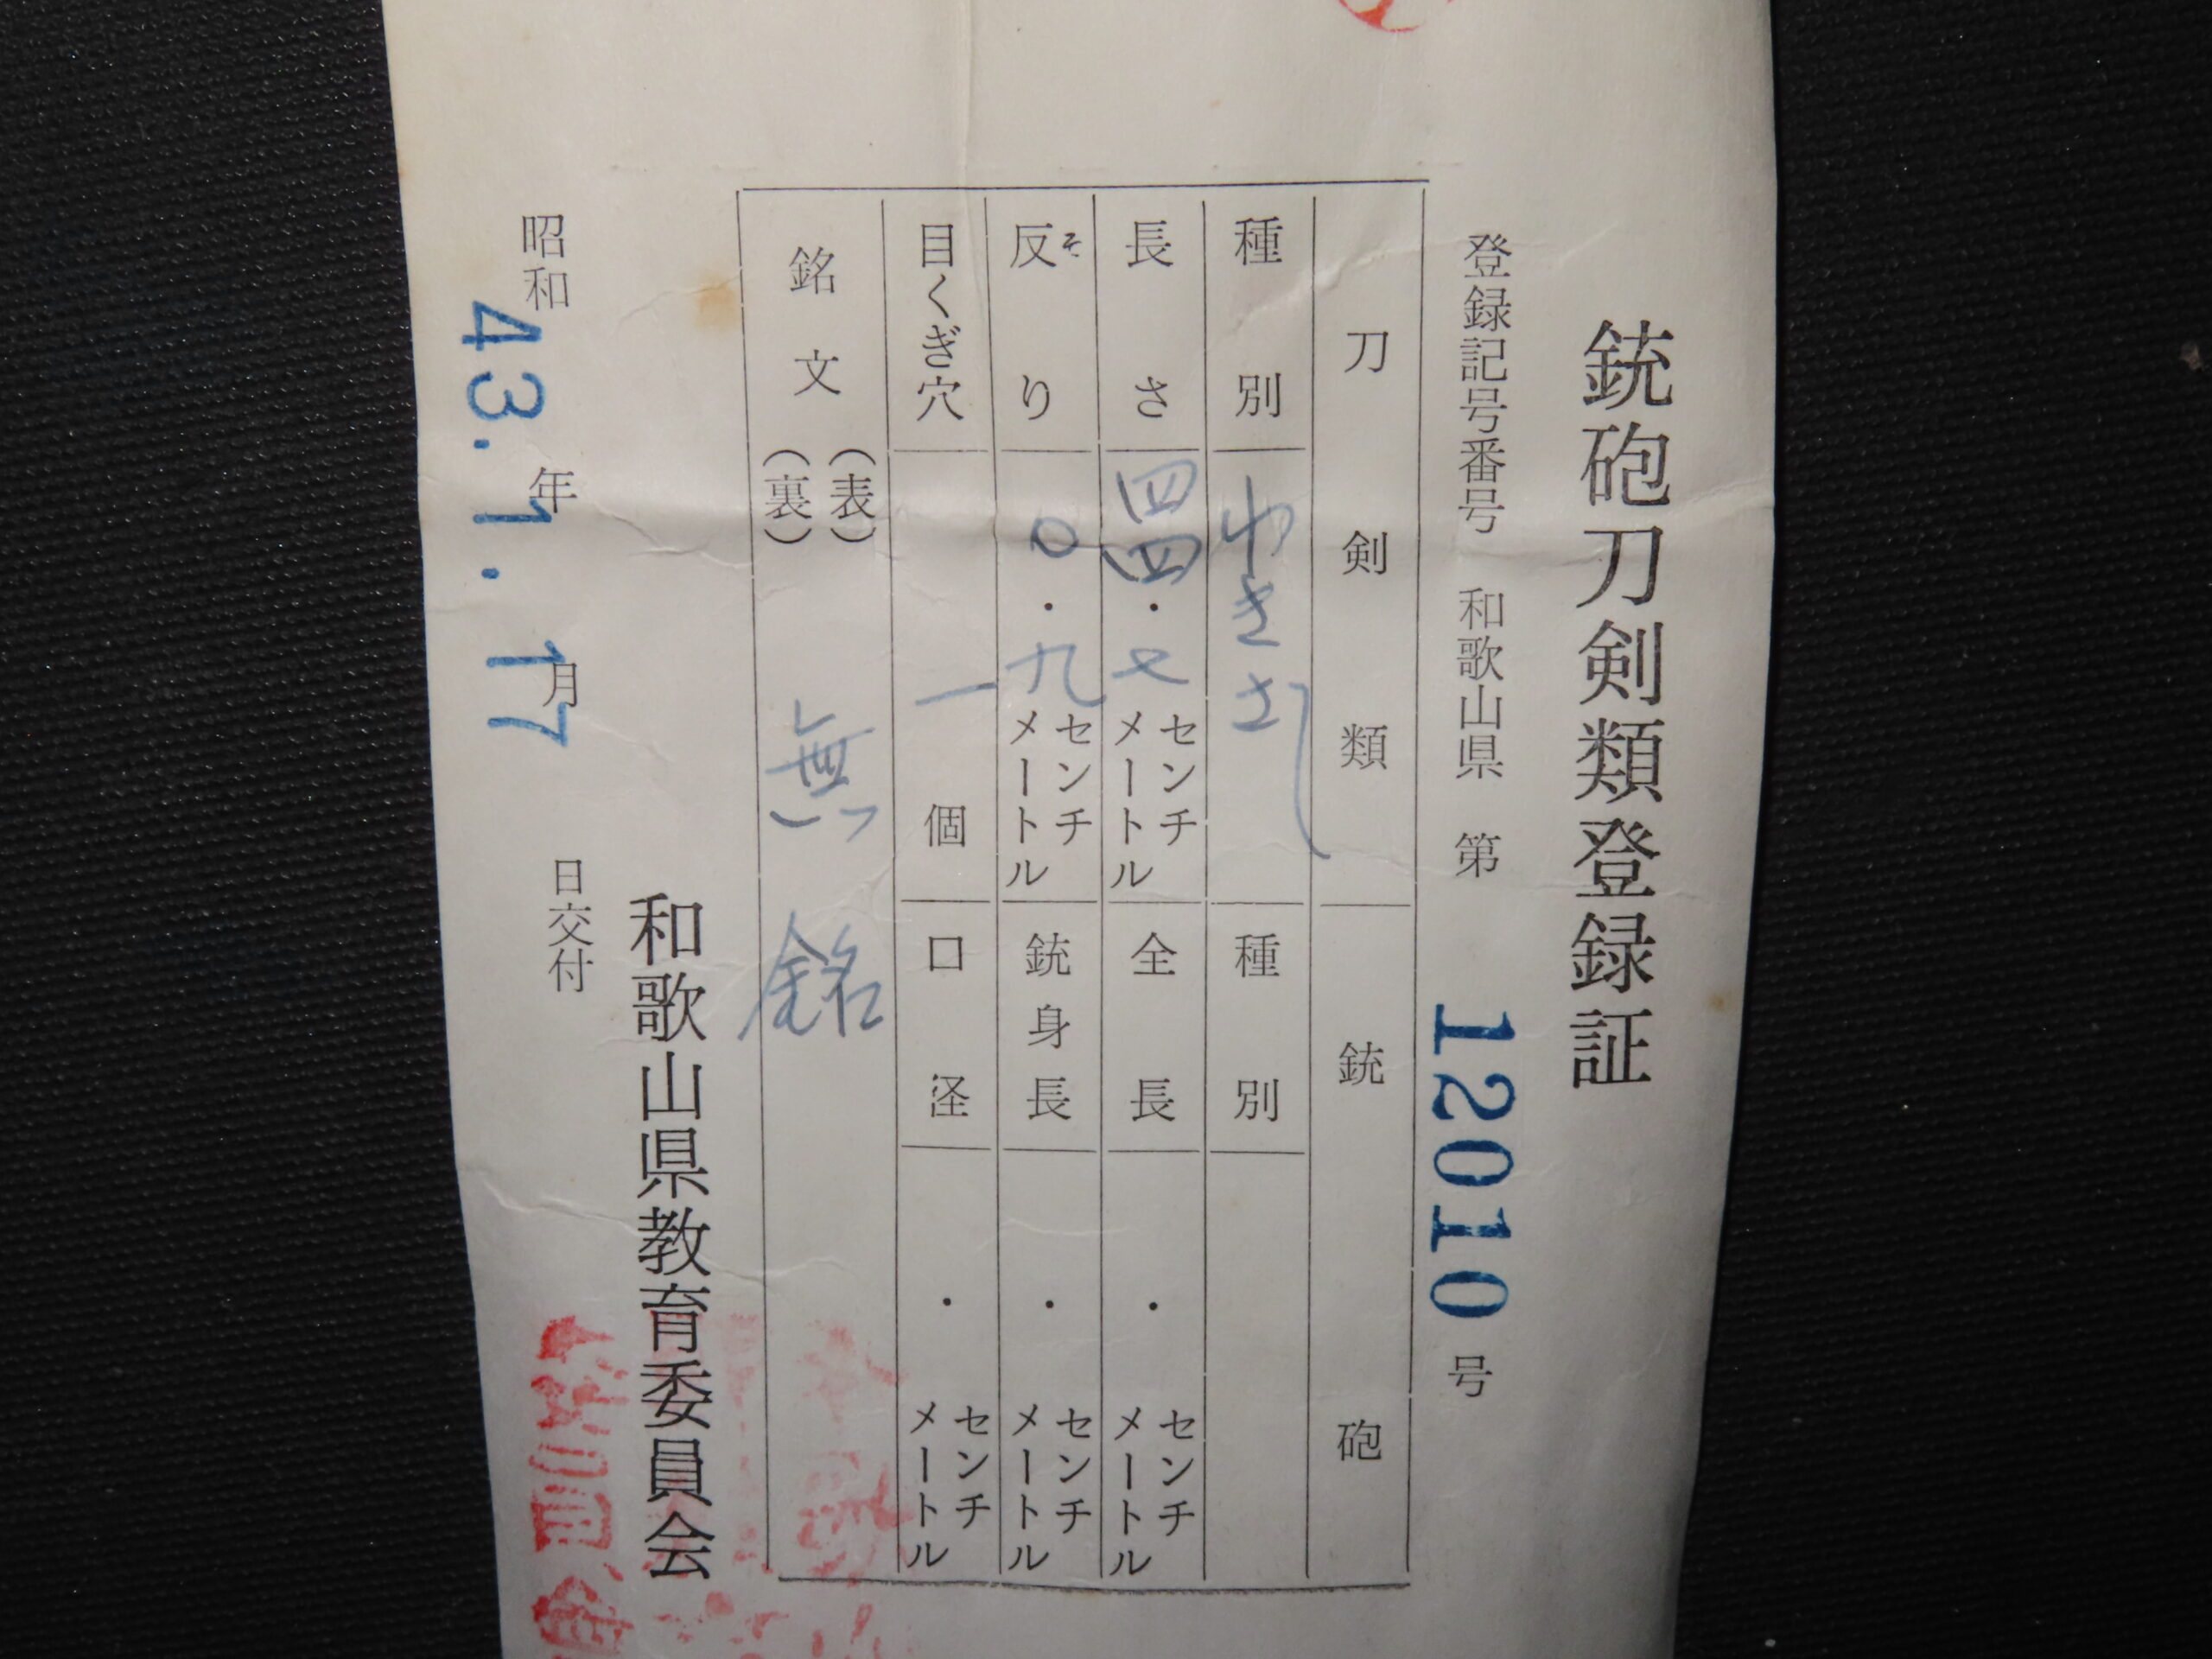 銃砲刀剣類登録証
登録記号番号 和歌山県 第 12010 号
刀剣類 銃砲
種別 わきざし 種別
長さ 四四・七 センチメートル 全長 ・ センチメートル
反り そ 〇・九 センチメートル 銃身長 ・ センチメートル
目くぎ穴 一 個 口径 ・ センチメートル
銘文 (表) (裏) 無銘
和歌山県教育委員会
昭和 43.1.17 年 月 日交付